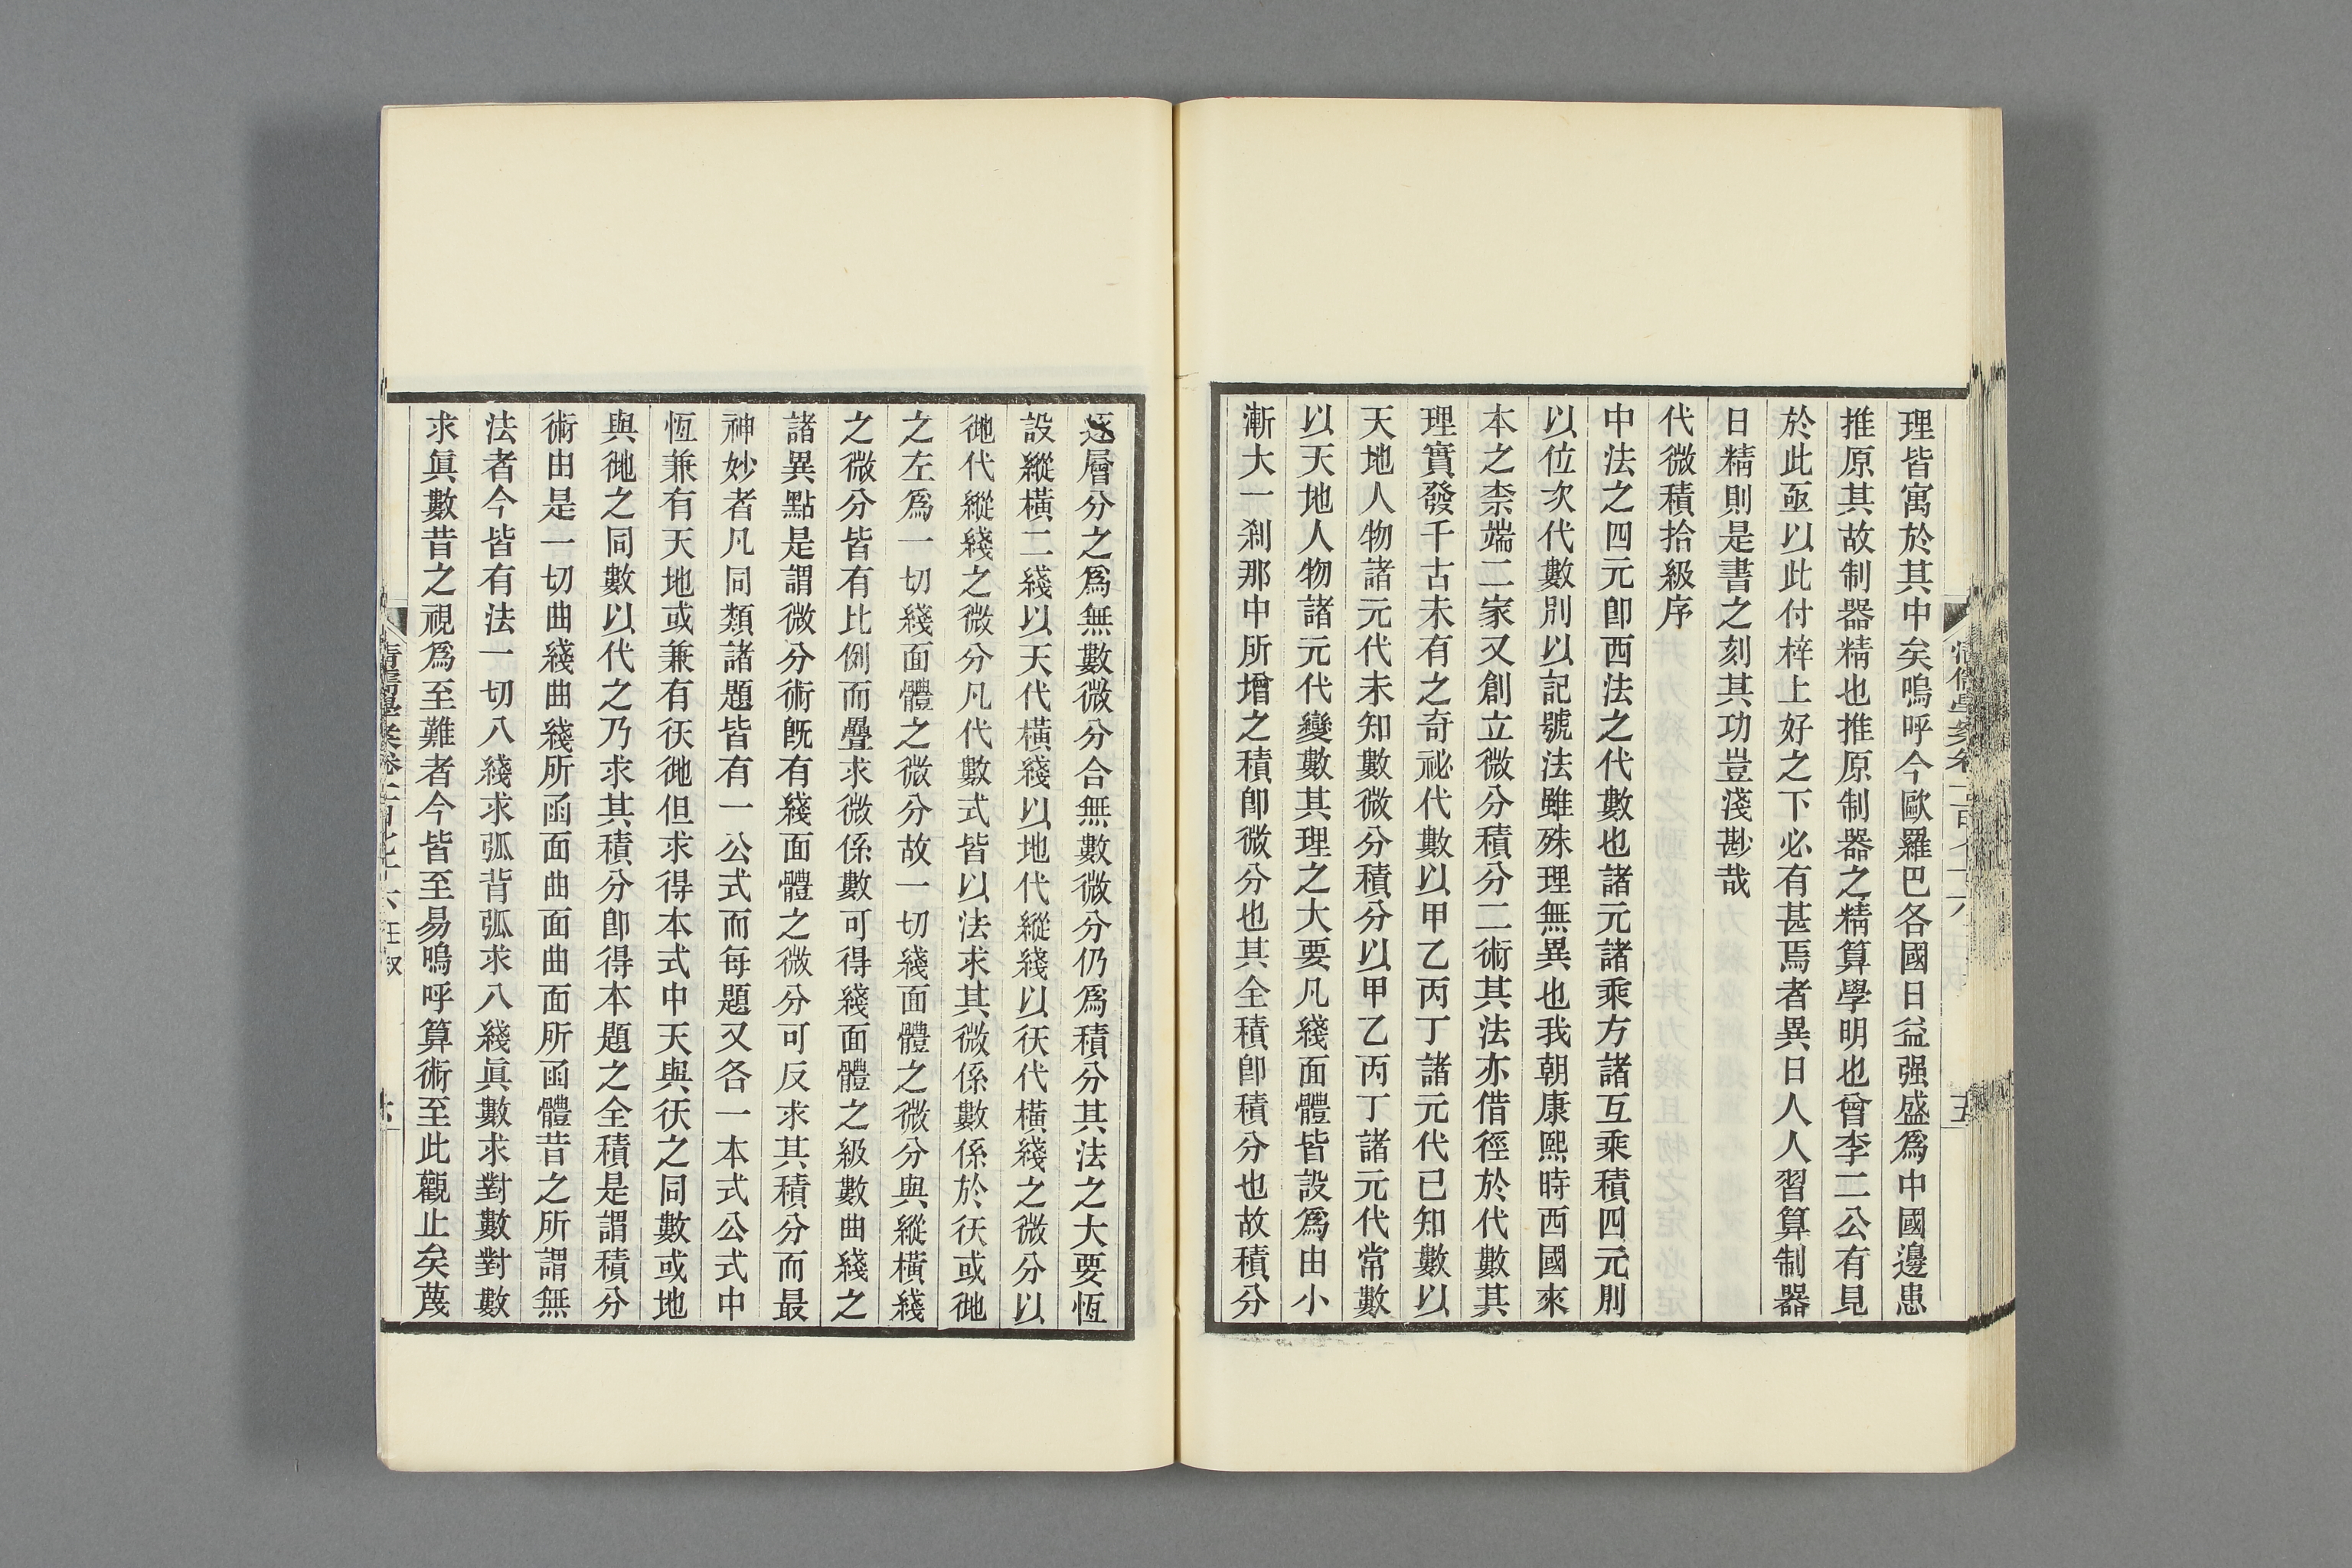 理皆寓於其中矣嗚呼今歐羅巴各國日益强盛爲中國邊患
推原其故制器精也推原制器之精算學明也曾李二公有見
於此亟以此付梓上好之下必有甚焉者異日人人習算制器
日精則是書之刻其功豈淺尠哉
代微積拾級序
中法之四元卽西法之代數也諸元諸乘方諸互乘積四元則
以位次代數則以記號法雖殊理無異也我朝康熙時西國來
本之柰端二家又創立微分積分二術其法亦借徑於代數其
理實發千古未有之奇祕代數以甲乙丙丁諸元代已知數以
天地人物諸元代未知數微分積分以甲乙丙丁諸元代常數
以天地人物諸元代變數其理之大要凡綫面體皆設爲由小
漸大一剎那中所增之積卽微分也其全積卽積分也故積分
逐層分之爲無數微分合無數微分仍爲積分其法之大要恆
設縱橫二綫以天代橫綫以地代縱綫以彳天代橫綫之微分以
彳地代縱綫之微分凡代數式皆以法求其微係數係於彳天或彳地
之左爲一切綫面體之微分故一切綫面體之微分與縱橫綫
之微分皆有比例而疊求微係數可得綫面體之級數曲綫之
諸異點是謂微分術旣有綫面體之微分可反求其積分而最
神妙者凡同類諸題皆有一公式而每題又各一本式公式中
恆兼有天地或兼有彳天彳地但求得本式中天與彳天之同數或地
與彳地之同數以代之乃求其積分卽得本題之全積是謂積分
術由是一切曲綫曲綫所函面曲面曲面所函體昔之所謂無
法者今皆有法一切八綫求弧背弧求八綫眞數求對數對數
求眞數昔之視爲至難者今皆至易嗚呼算術至此觀止矣蔑